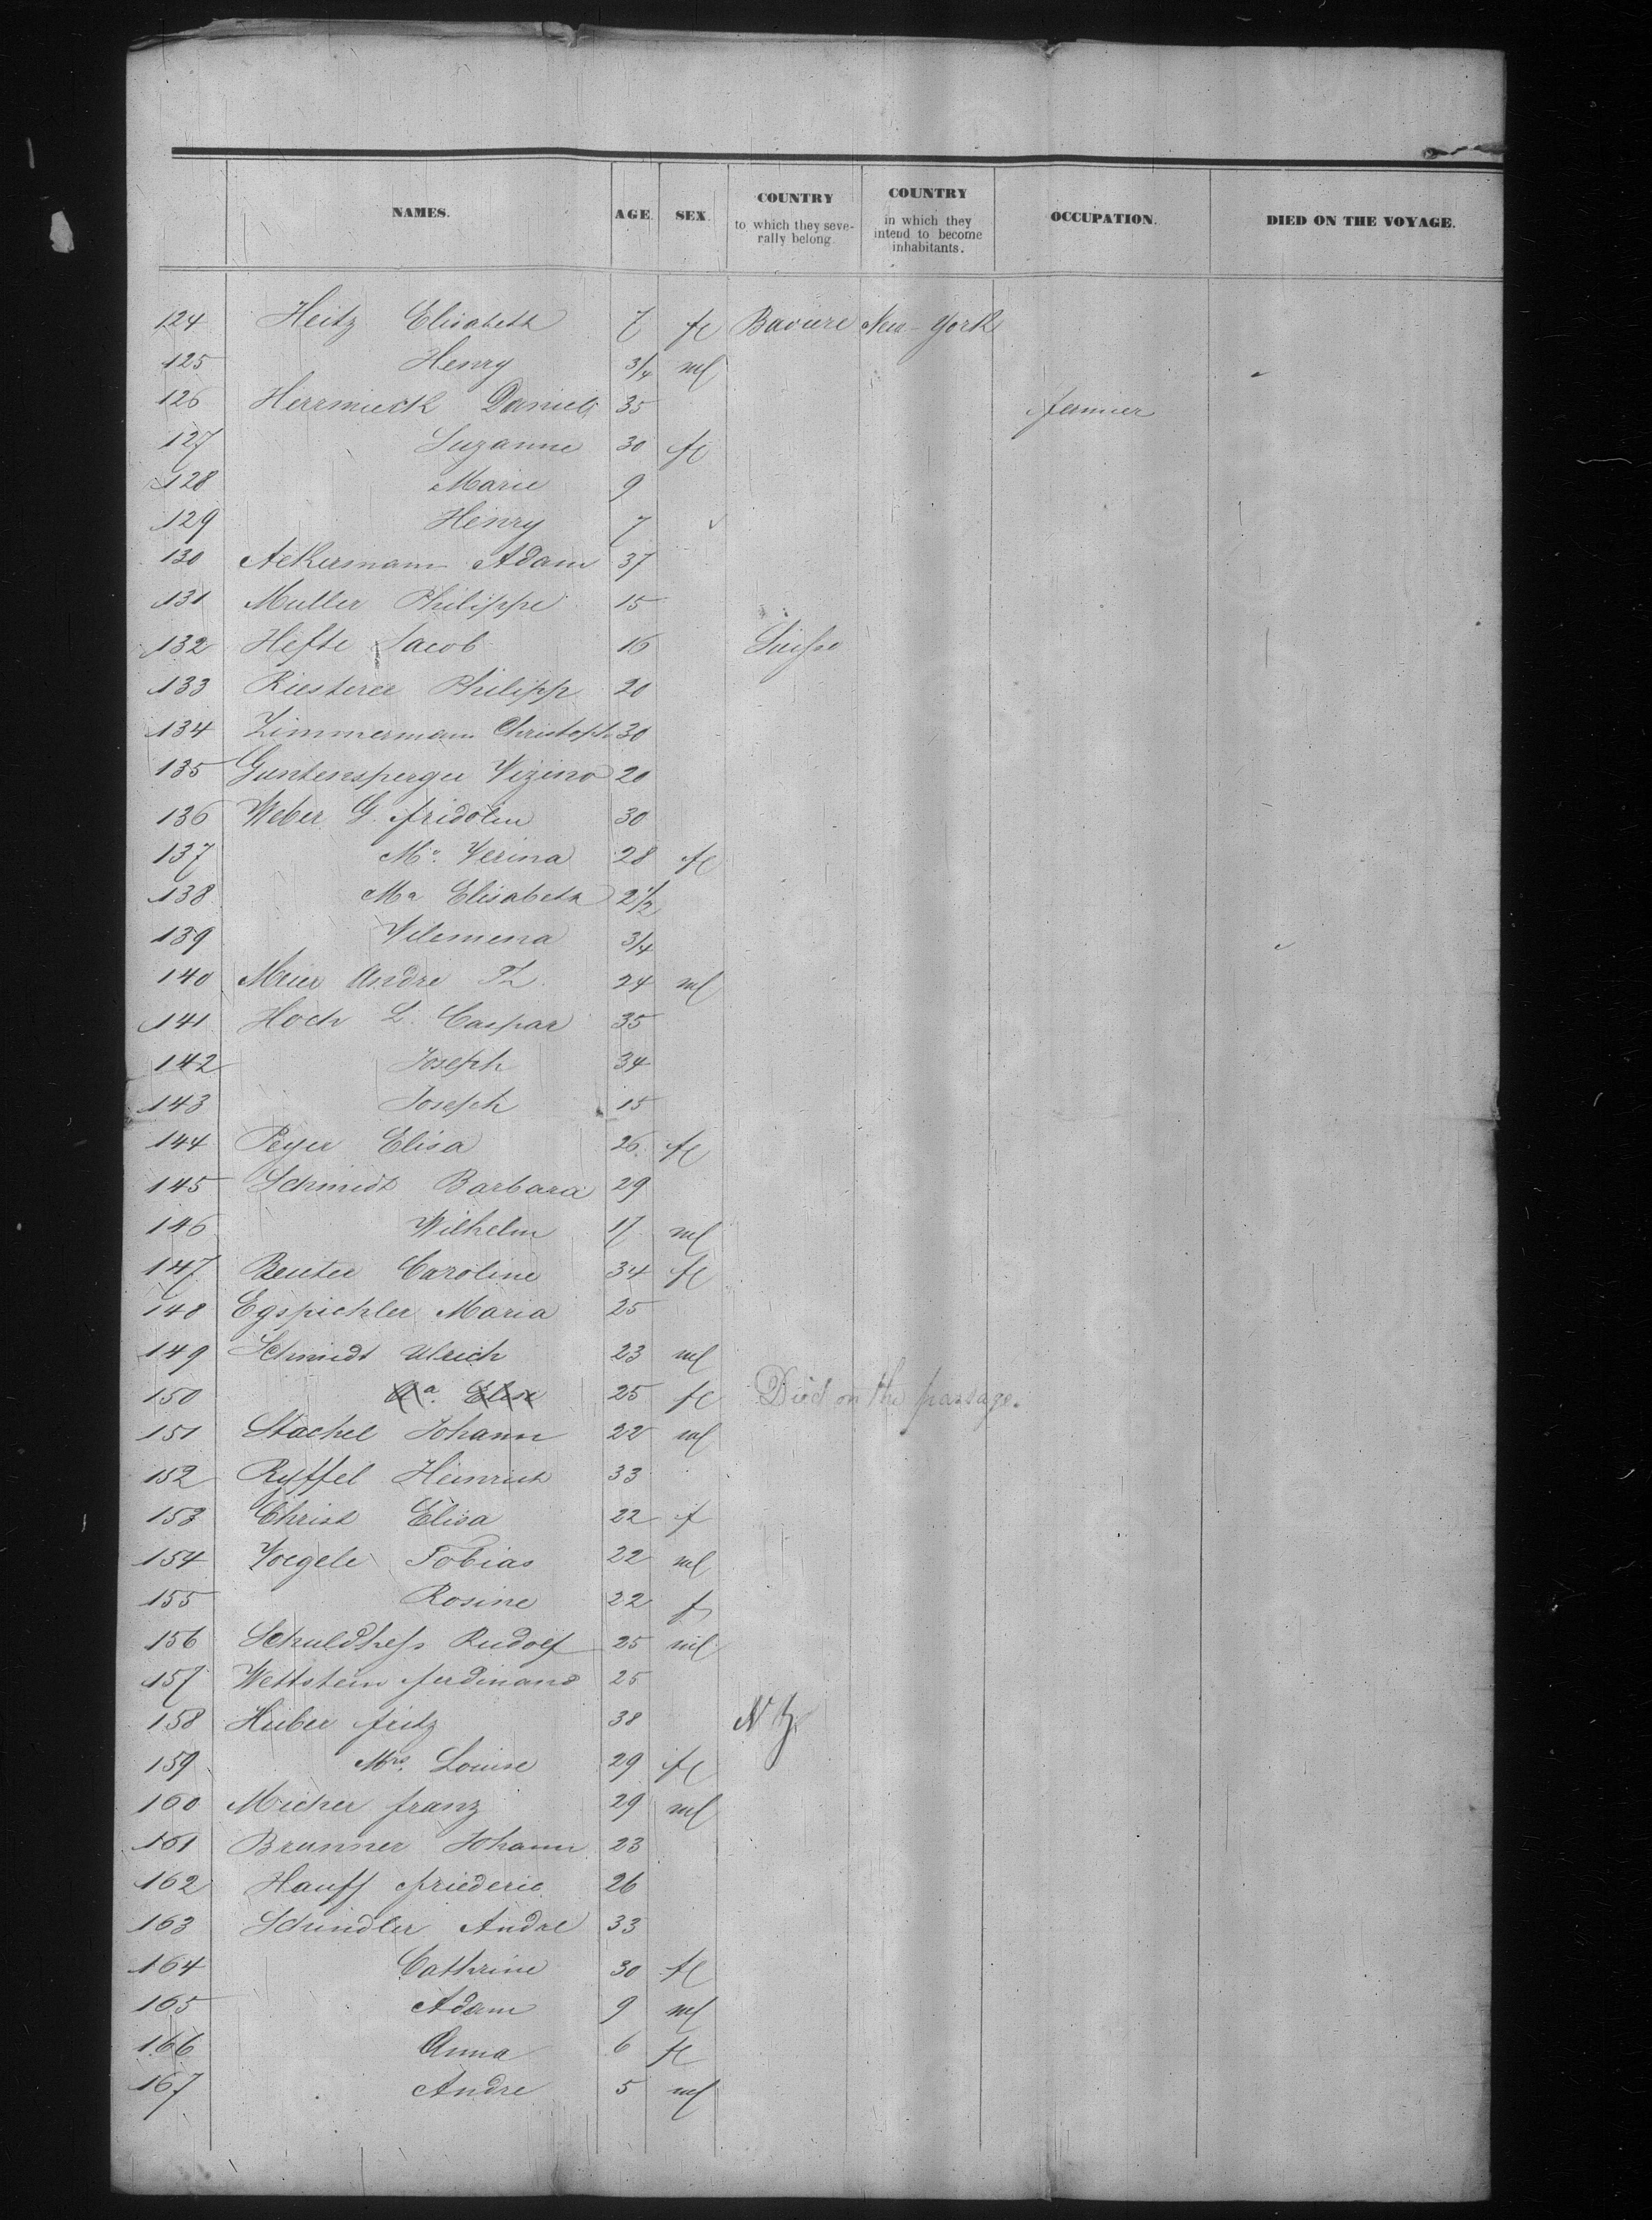 NAMES. AGE. SEX. COUNTRY to which they severally belong. COUNTRY in which they intend to become inhabitants. OCCUPATION. DIED ON THE VOYAGE.
124 Heitz Elisabeth 7 fl Baviere New-York
125 Henry 3/4 ml
126 Daniel 35 fermier
127 Suzanne 30 fl
128 Marie 9
129 Henry 7
130 Ackermann Adam 37
131 Muller Philippe 15
132 Hefti Jacob 16 Suisse
133 Riesterer Philipp 20
134 Zimmermann Christoph 30
135 Guntensperger 20
136 Weber G. fridolin 30
137 Ma. Verina 28 fl
138 Ma Elisabeth 2 1/2
139 Vilemena 3/4
140 Meier Andre 24 ml
141 Hoch L. Caspar 35
142 Joseph 34
143 Joseph 15
144 Peyer Elisa 26 fl
145 Schmidt Barbara 29
146 Wilhelm ml
147 Caroline 34 fl
148 Egspichler Maria 25
149 Schmidt Ulrich 23 ml
150 Elise 25 fl Died on the passage.
151 Stachel Johann 22 ml
152 Ryffel Heinrich 33
153 Christ Elisa 22 f
154 Voegele Tobias 22 ml
155 Rosine 22 f
156 Schuldhess Rudolf 25 ml
157 Wettstein ferdinand 25
158 Huber fritz 38 N Y.
159 Mrs. Louise 29 fl
160 Micher franz 29 ml
161 Brunner Johann 23
162 Hauff friederic 26
163 Schindler Andre 33
164 Cathrine 30 fl
165 Adam 9 ml
166 Anna 6 fl
167 Andre 5 ml